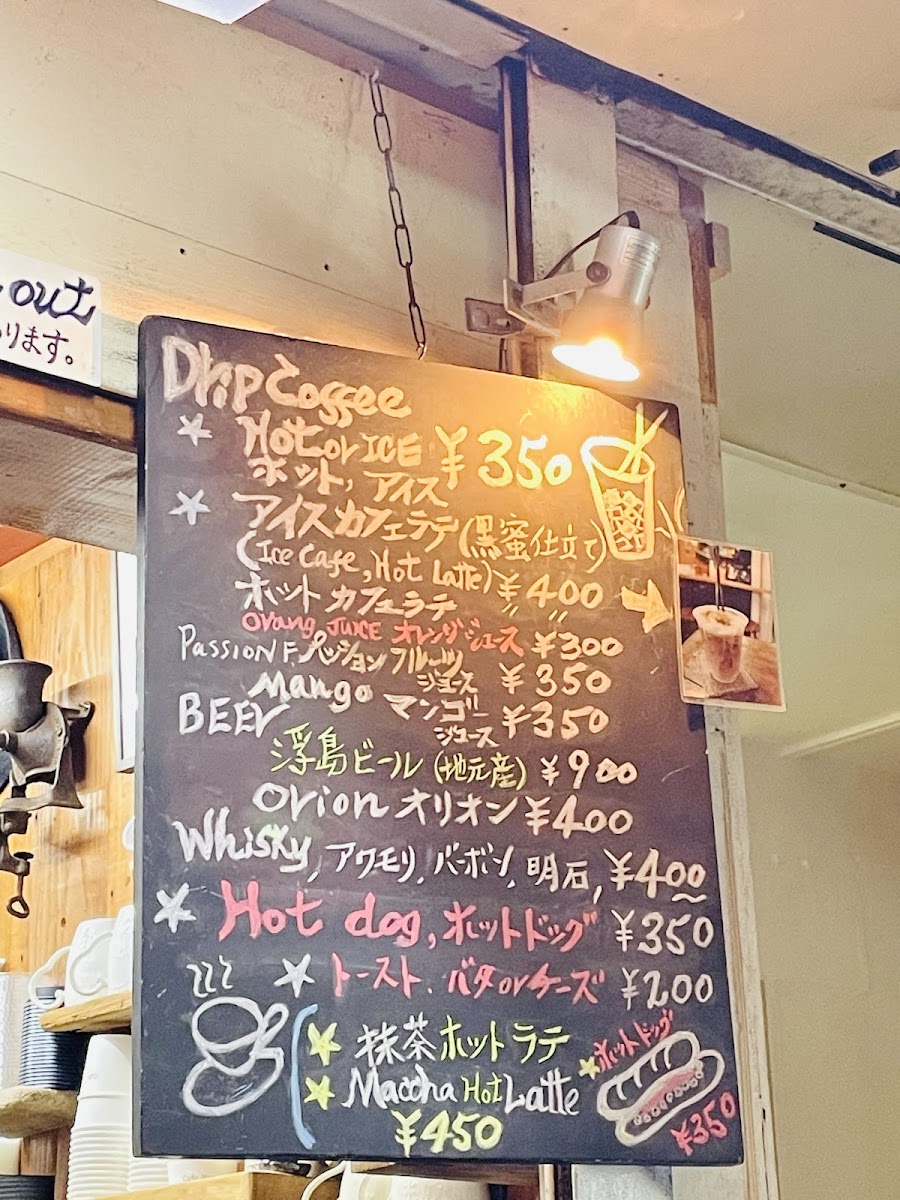 out
ります。
Drip Coffee
Hot or ICE ¥350
ホット, アイス
アイスカフェラテ(黒蜜仕立て)
(Ice Cafe, Hot Latte) ¥400
ホット カフェラテ 〃 〃
Orang JUICE オレンジジュース ¥300
PassionF. パッションフルーツ
ジュース ¥350
Mango マンゴー
ジュース ¥350
BEEr
浮島ビール(地元産) ¥900
Orion オリオン ¥400
Whisky, アワモリ, バーボン, 明石, ¥400〜
Hot dog, ホットドッグ ¥350
トースト. バタorチーズ ¥200
抹茶ホットラテ
Maccha Hot Latte
¥450
ホットドッグ
¥350